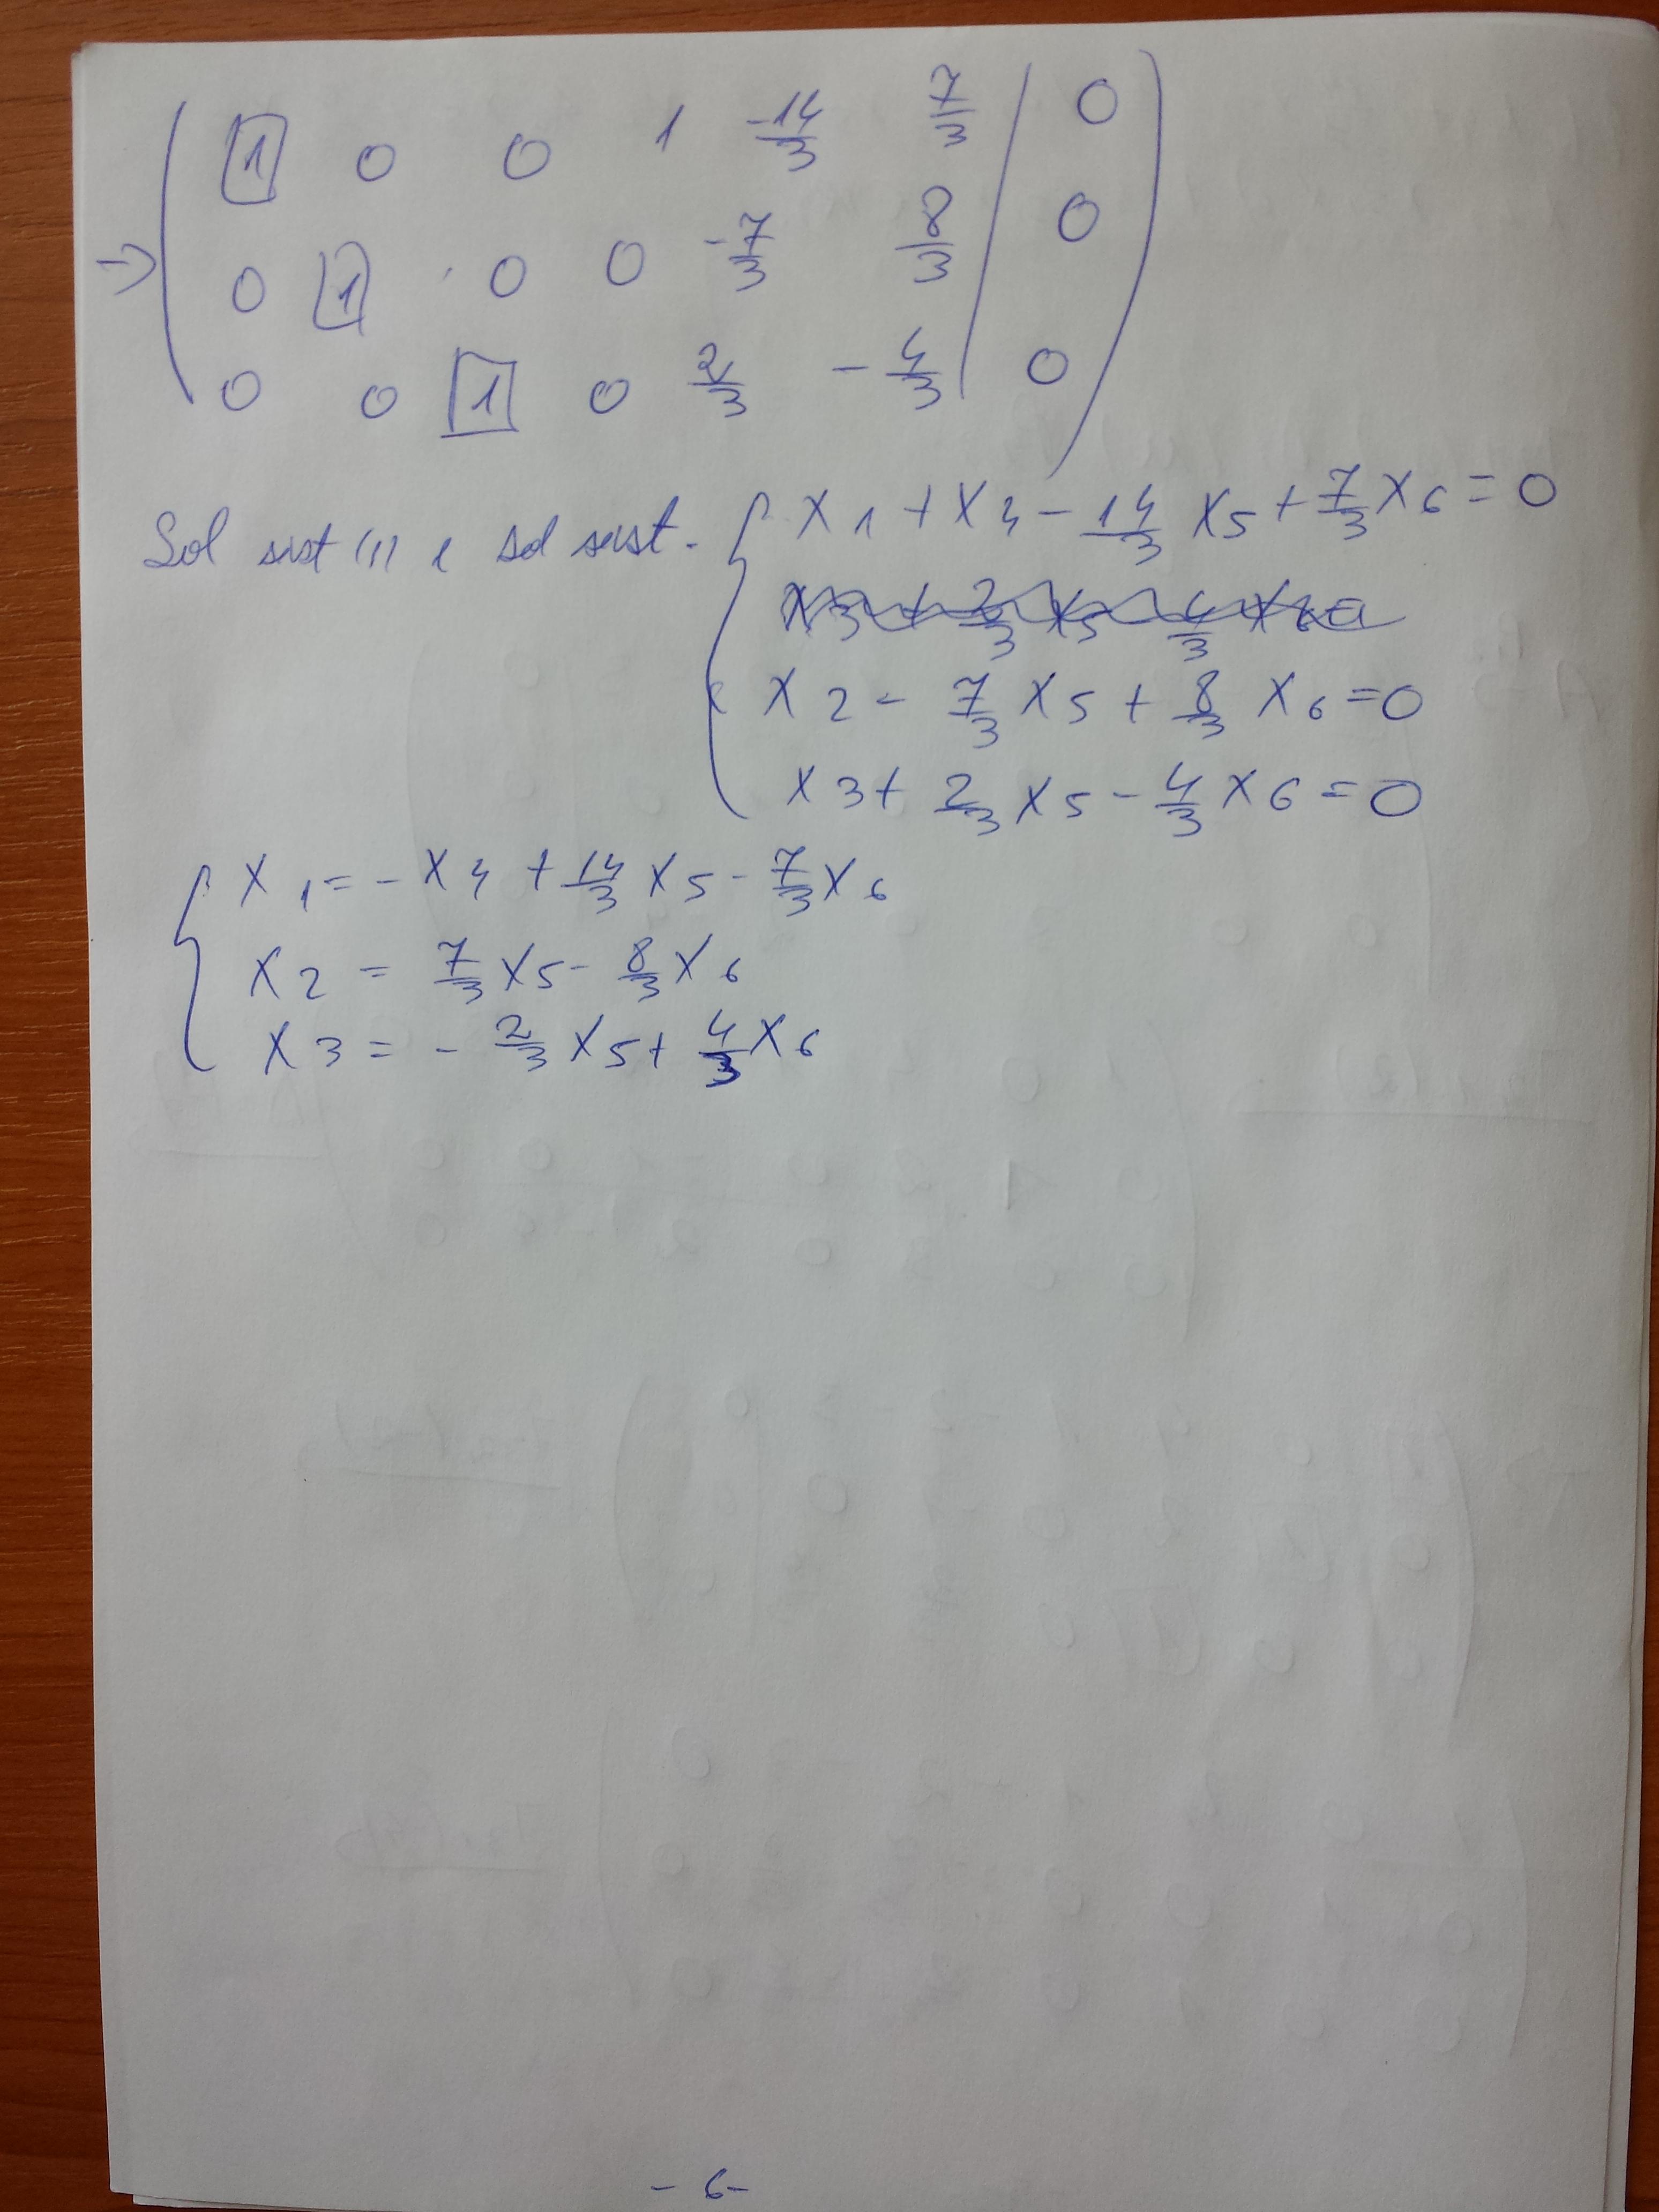 1 0 0 1 -14/3 7/3 | 0
→ 0 1 0 0 -7/3 8/3 | 0
0 0 1 0 2/3 -4/3 | 0
Sol sist (1) e sol sist. x1 + x4 - 14/3 x5 + 7/3 x6 = 0
x2 - 7/3 x5 + 8/3 x6 = 0
x3 + 2/3 x5 - 4/3 x6 = 0
x1 = - x4 + 14/3 x5 - 7/3 x6
x2 = 7/3 x5 - 8/3 x6
x3 = - 2/3 x5 + 4/3 x6
- 6 -